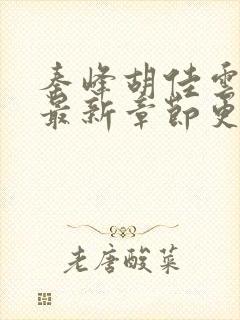 秦峰胡佳雲
最新章節更
老唐酸菜